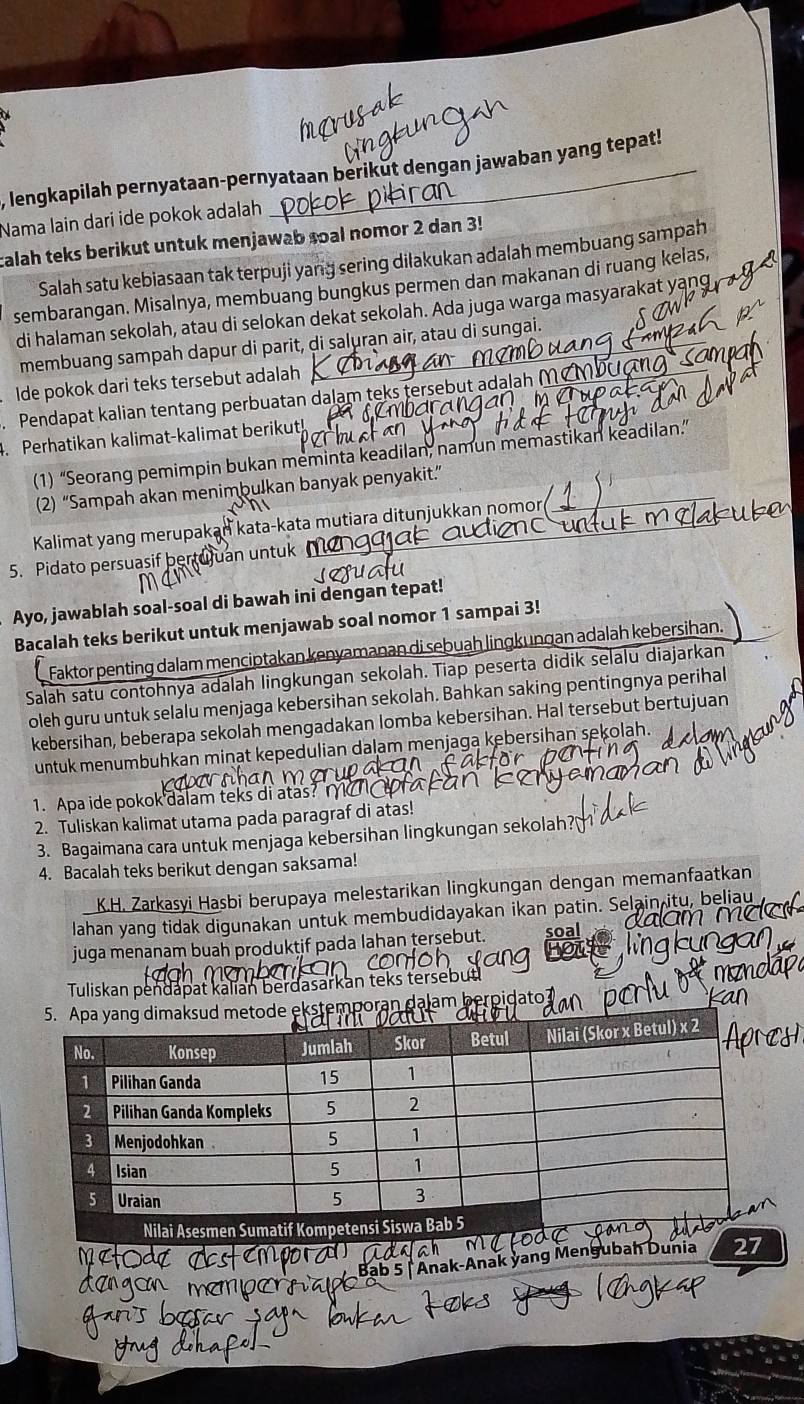 merusak
lingkungan
, lengkapilah pernyataan-pernyataan berikut dengan jawaban yang tepat!
Nama lain dari ide pokok adalah pokok pikiran
calah teks berikut untuk menjawab soal nomor 2 dan 3!
Salah satu kebiasaan tak terpuji yang sering dilakukan adalah membuang sampah
sembarangan. Misalnya, membuang bungkus permen dan makanan di ruang kelas,
di halaman sekolah, atau di selokan dekat sekolah. Ada juga warga masyarakat yang
membuang sampah dapur di parit, di saluran air, atau di sungai.
Ide pokok dari teks tersebut adalah membuang sampah
Pendapat kalian tentang perbuatan dalam teks tersebut adalah membuang sampah
sembarangan merupakan
4. Perhatikan kalimat-kalimat berikut! perbuatan yang tidak terpuji dan dapat
(1) “Seorang pemimpin bukan meminta keadilan, namun memastikan keadilan.”
(2) “Sampah akan menimbulkan banyak penyakit.”
Kalimat yang merupakan kata-kata mutiara ditunjukkan nomor (1)
5. Pidato persuasif bertujuan untuk mengajak audienc untuk melakuken
sesuatu
Ayo, jawablah soal-soal di bawah ini dengan tepat!
Bacalah teks berikut untuk menjawab soal nomor 1 sampai 3!
Faktor penting dalam menciptakan kenyamanan di sebuah lingkungan adalah kebersihan.
Salah satu contohnya adalah lingkungan sekolah. Tiap peserta didik selalu diajarkan
oleh guru untuk selalu menjaga kebersihan sekolah. Bahkan saking pentingnya perihal
kebersihan, beberapa sekolah mengadakan lomba kebersihan. Hal tersebut bertujuan
untuk menumbuhkan minat kepedulian dalam menjaga kebersihan sekolah.
kebersihan merupakan faktor penting dalam
1. Apa ide pokok dalam teks di atas? menciptakan kenyamanan di lingkungan
2. Tuliskan kalimat utama pada paragraf di atas!
3. Bagaimana cara untuk menjaga kebersihan lingkungan sekolah? tidak
4. Bacalah teks berikut dengan saksama!
K.H. Zarkasyi Hasbi berupaya melestarikan lingkungan dengan memanfaatkan
lahan yang tidak digunakan untuk membudidayakan ikan patin. Selain itu, beliau
juga menanam buah produktif pada lahan tersebut. soal dalam
HOTS
telah memberikan contoh yang lingkungan
Tuliskan pendapat kalian berdasarkan teks tersebut!
5. Apa yang dimaksud metode ekstemporan dalam berpidato? dan perlu mendapa
kan
Apresi
No. Konsep Jumlah Skor Betul Nilai (Skor x Betul) x 2
1 Pilihan Ganda 15 1
2 Pilihan Ganda Kompleks 5 2
3 Menjodohkan 5 1
4 Isian 5 1
5 Uraian 5 3
Nilai Asesmen Sumatif Kompetensi Siswa Bab 5
Metode ekstemporan adalah metode yang
Bab 5 | Anak-Anak yang Mengubah Dunia 27
dengan
garis besar saja bukan teks lengkap
yng dihafal